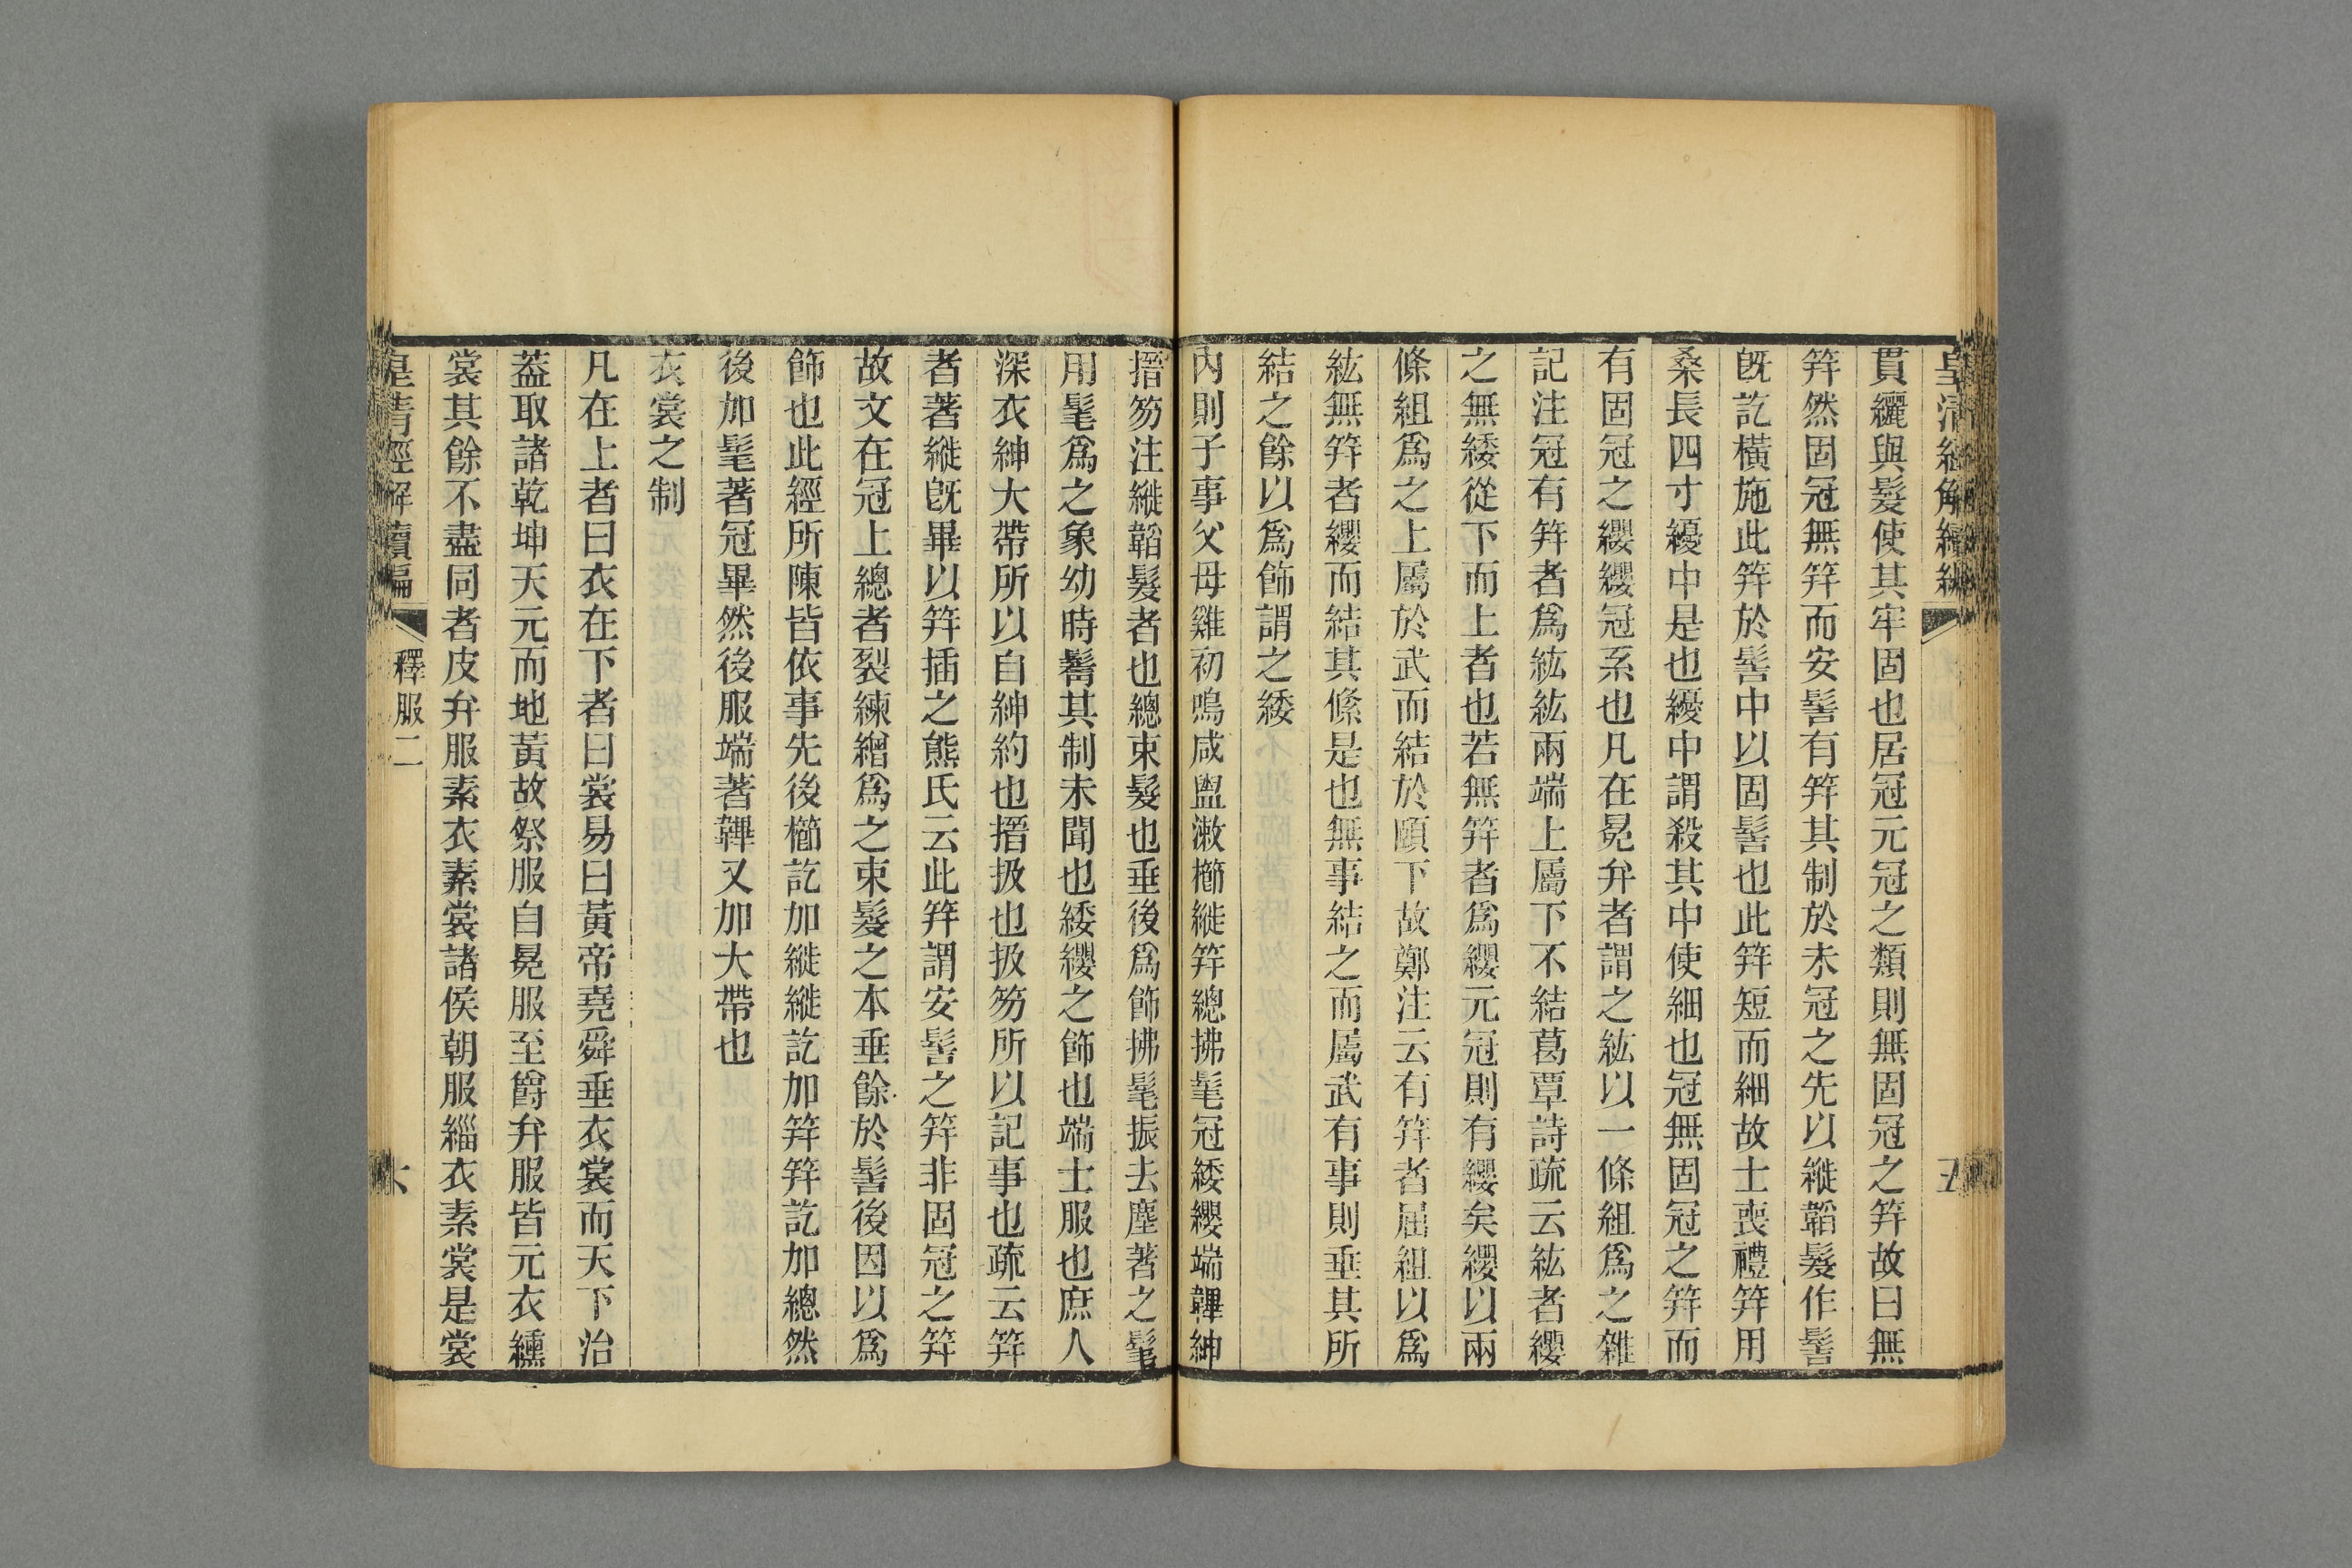 皇淸經解續編
五
貫纚與髮使其牢固也居冠元冠之類則無固冠之笄故曰無
笄然固冠無笄而安髻有笄其制於未冠之先以縰韜髮作髻
旣訖橫施此笄於髻中以固髻也此笄短而細故士喪禮笄用
桑長四寸纋中是也纋中謂殺其中使細也冠無固冠之笄而
有固冠之纓纓冠系也凡在冕弁者謂之紘以一條組爲之雜
記注冠有笄者爲紘紘兩端上屬下不結葛覃詩疏云紘者纓
之無緌從下而上者也若無笄者爲纓元冠則有纓矣纓以兩
條組爲之上屬於武而結於頤下故鄭注云有笄者屈組以爲
紘無笄者纓而結其絛是也無事結之而屬武有事則垂其所
結之餘以爲飾謂之緌
內則子事父母雞初鳴咸盥漱櫛縰笄總拂髦冠緌纓端韠紳
搢笏注縰韜髮者也總束髮也垂後爲飾拂髦振去塵著之髦
用髦爲之象幼時鬌其制未聞也緌纓之飾也端士服也庶人
深衣紳大帶所以自紳約也搢扱也扱笏所以記事也疏云笄
者著縰旣畢以笄插之熊氏云此笄謂安髻之笄非固冠之笄
故文在冠上總者裂練繒爲之束髮之本垂餘於髻後因以爲
飾也此經所陳皆依事先後櫛訖加縰縰訖加笄笄訖加總然
後加髦著冠畢然後服端著韠又加大帶也
衣裳之制
凡在上者曰衣在下者曰裳易曰黃帝堯舜垂衣裳而天下治
葢取諸乾坤天元而地黃故祭服自冕服至爵弁服皆元衣纁
裳其餘不盡同者皮弁服素衣素裳諸侯朝服緇衣素裳是裳
皇淸經解續編
釋服二
六